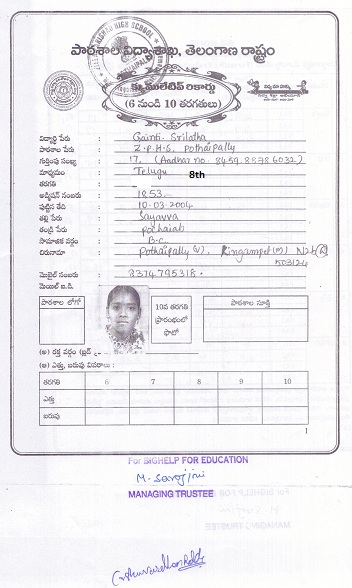 పాఠశాల విద్యాశాఖ, తెలంగాణ రాష్ట్రం
క్యుములేటివ్ రికార్డు
(6 నుండి 10 తరగతులు)
విద్యార్థి పేరు : Gainti. Srilatha
పాఠశాల పేరు : Z.P.H.S. Pothaipally
గుర్తింపు సంఖ్య : 17. (Aadhar no. 8459.8878 6032)
మాధ్యమం : Telugu 8th
తరగతి :
అడ్మిషన్ నంబరు : 1853.
పుట్టిన తేది : 10-03-2004
తల్లి పేరు : Sayavva
తండ్రి పేరు : pochaiah
సామాజిక వర్గం : B.C.
చిరునామా : Pothaipally (v). Ringampet (m)
503124
మొబైల్ నంబరు : 8374795318.
మెయిల్ ఐ.డి. :
పాఠశాల లోగో
10వ తరగతి ప్రారంభంలో ఫొటో
పాఠశాల సూక్తి
(అ) రక్త వర్గం (బ్లడ్
(ఆ) ఎత్తు, బరువు వివరాలు :
తరగతి 6 7 8 9 10
ఎత్తు
బరువు
1
For BIGHELP FOR EDUCATION
M. Sarojini
MANAGING TRUSTEE